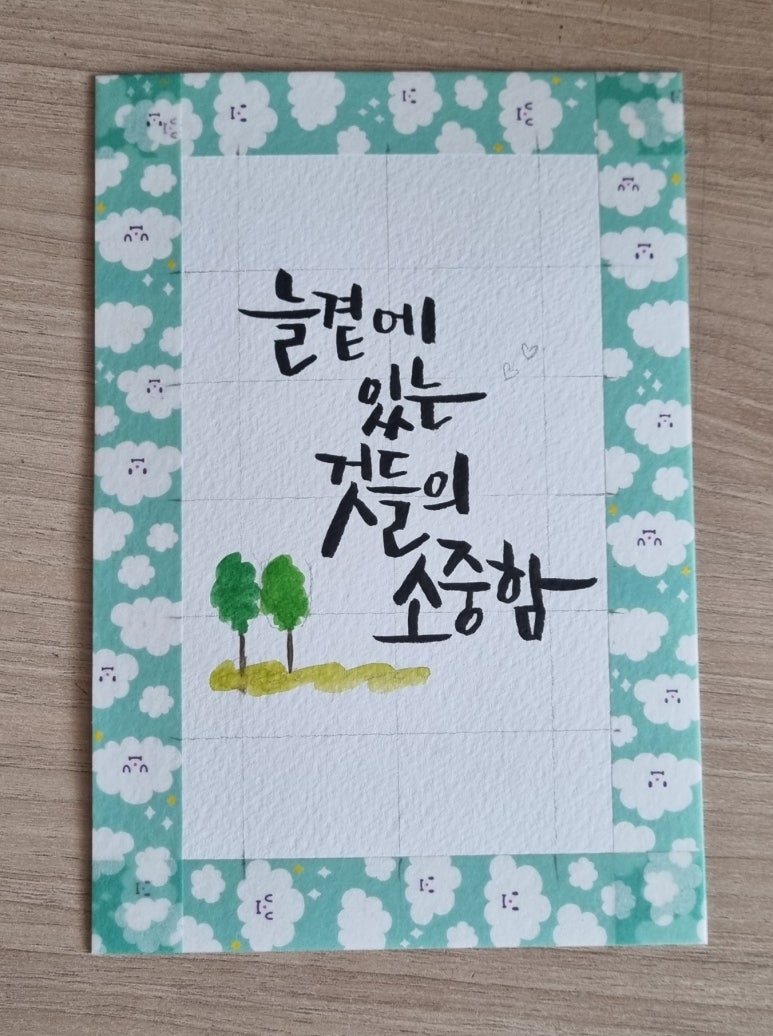 늘곁에
있는
것들의
소중함